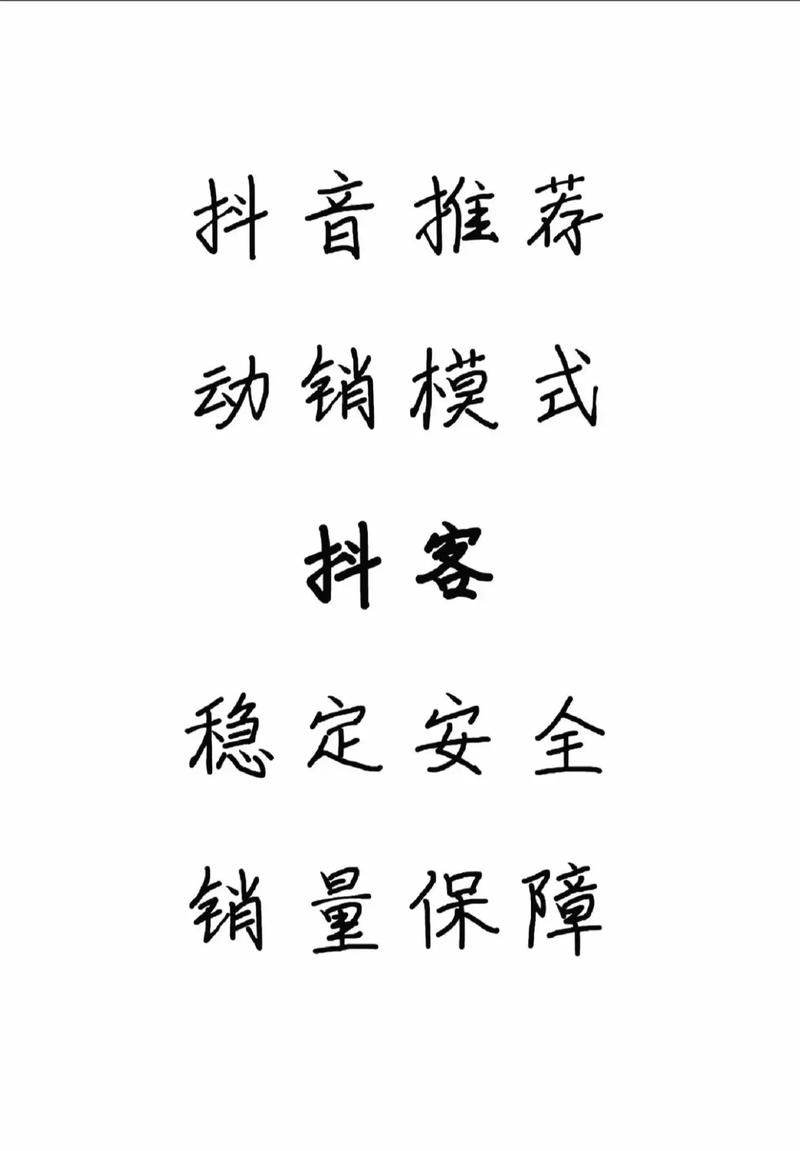 抖音推荐
动销模式
抖客
稳定安全
销量保障